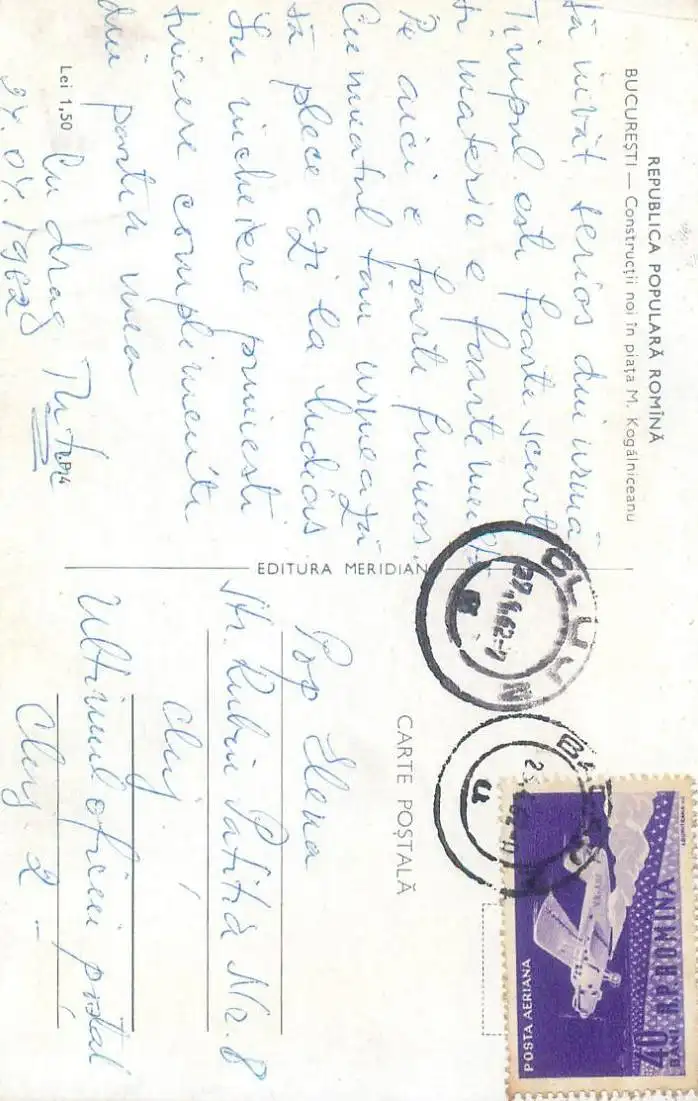 REPUBLICA POPULARĂ ROMÎNĂ
BUCUREŞTI — Construcţii noi în piaţa M. Kogălniceanu
să învăţ serios din urmă
Timpul este foarte scurt
şi materie e foarte
Pe aici e foarte frumos.
Cumnatul tău urmează
să plece azi la
În încheiere primeşti
sincere complimente
din partea mea
Cu drag
27.04.1962
Lei 1,50
P14
EDITURA MERIDIANE
CARTE POŞTALĂ
Pop Elena
Str. Rubin Patiţia Nr. 8
Cluj
Ultimul oficiu poştal
Cluj 2
CLUJ
POSTA AERIANA
40 BANI
R.P.ROMINA